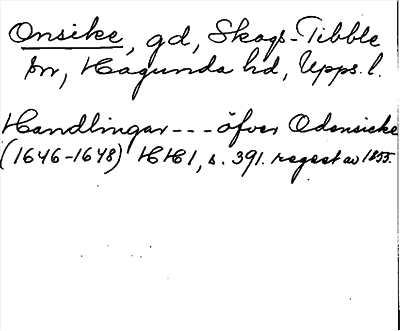 Onsike, gd, Skogs-Tibble
sn, Hagunda hd, Upps. l.
Handlingar --- öfver Odensicke
(1646-1648) HH 1, s. 391. regest av 1855.